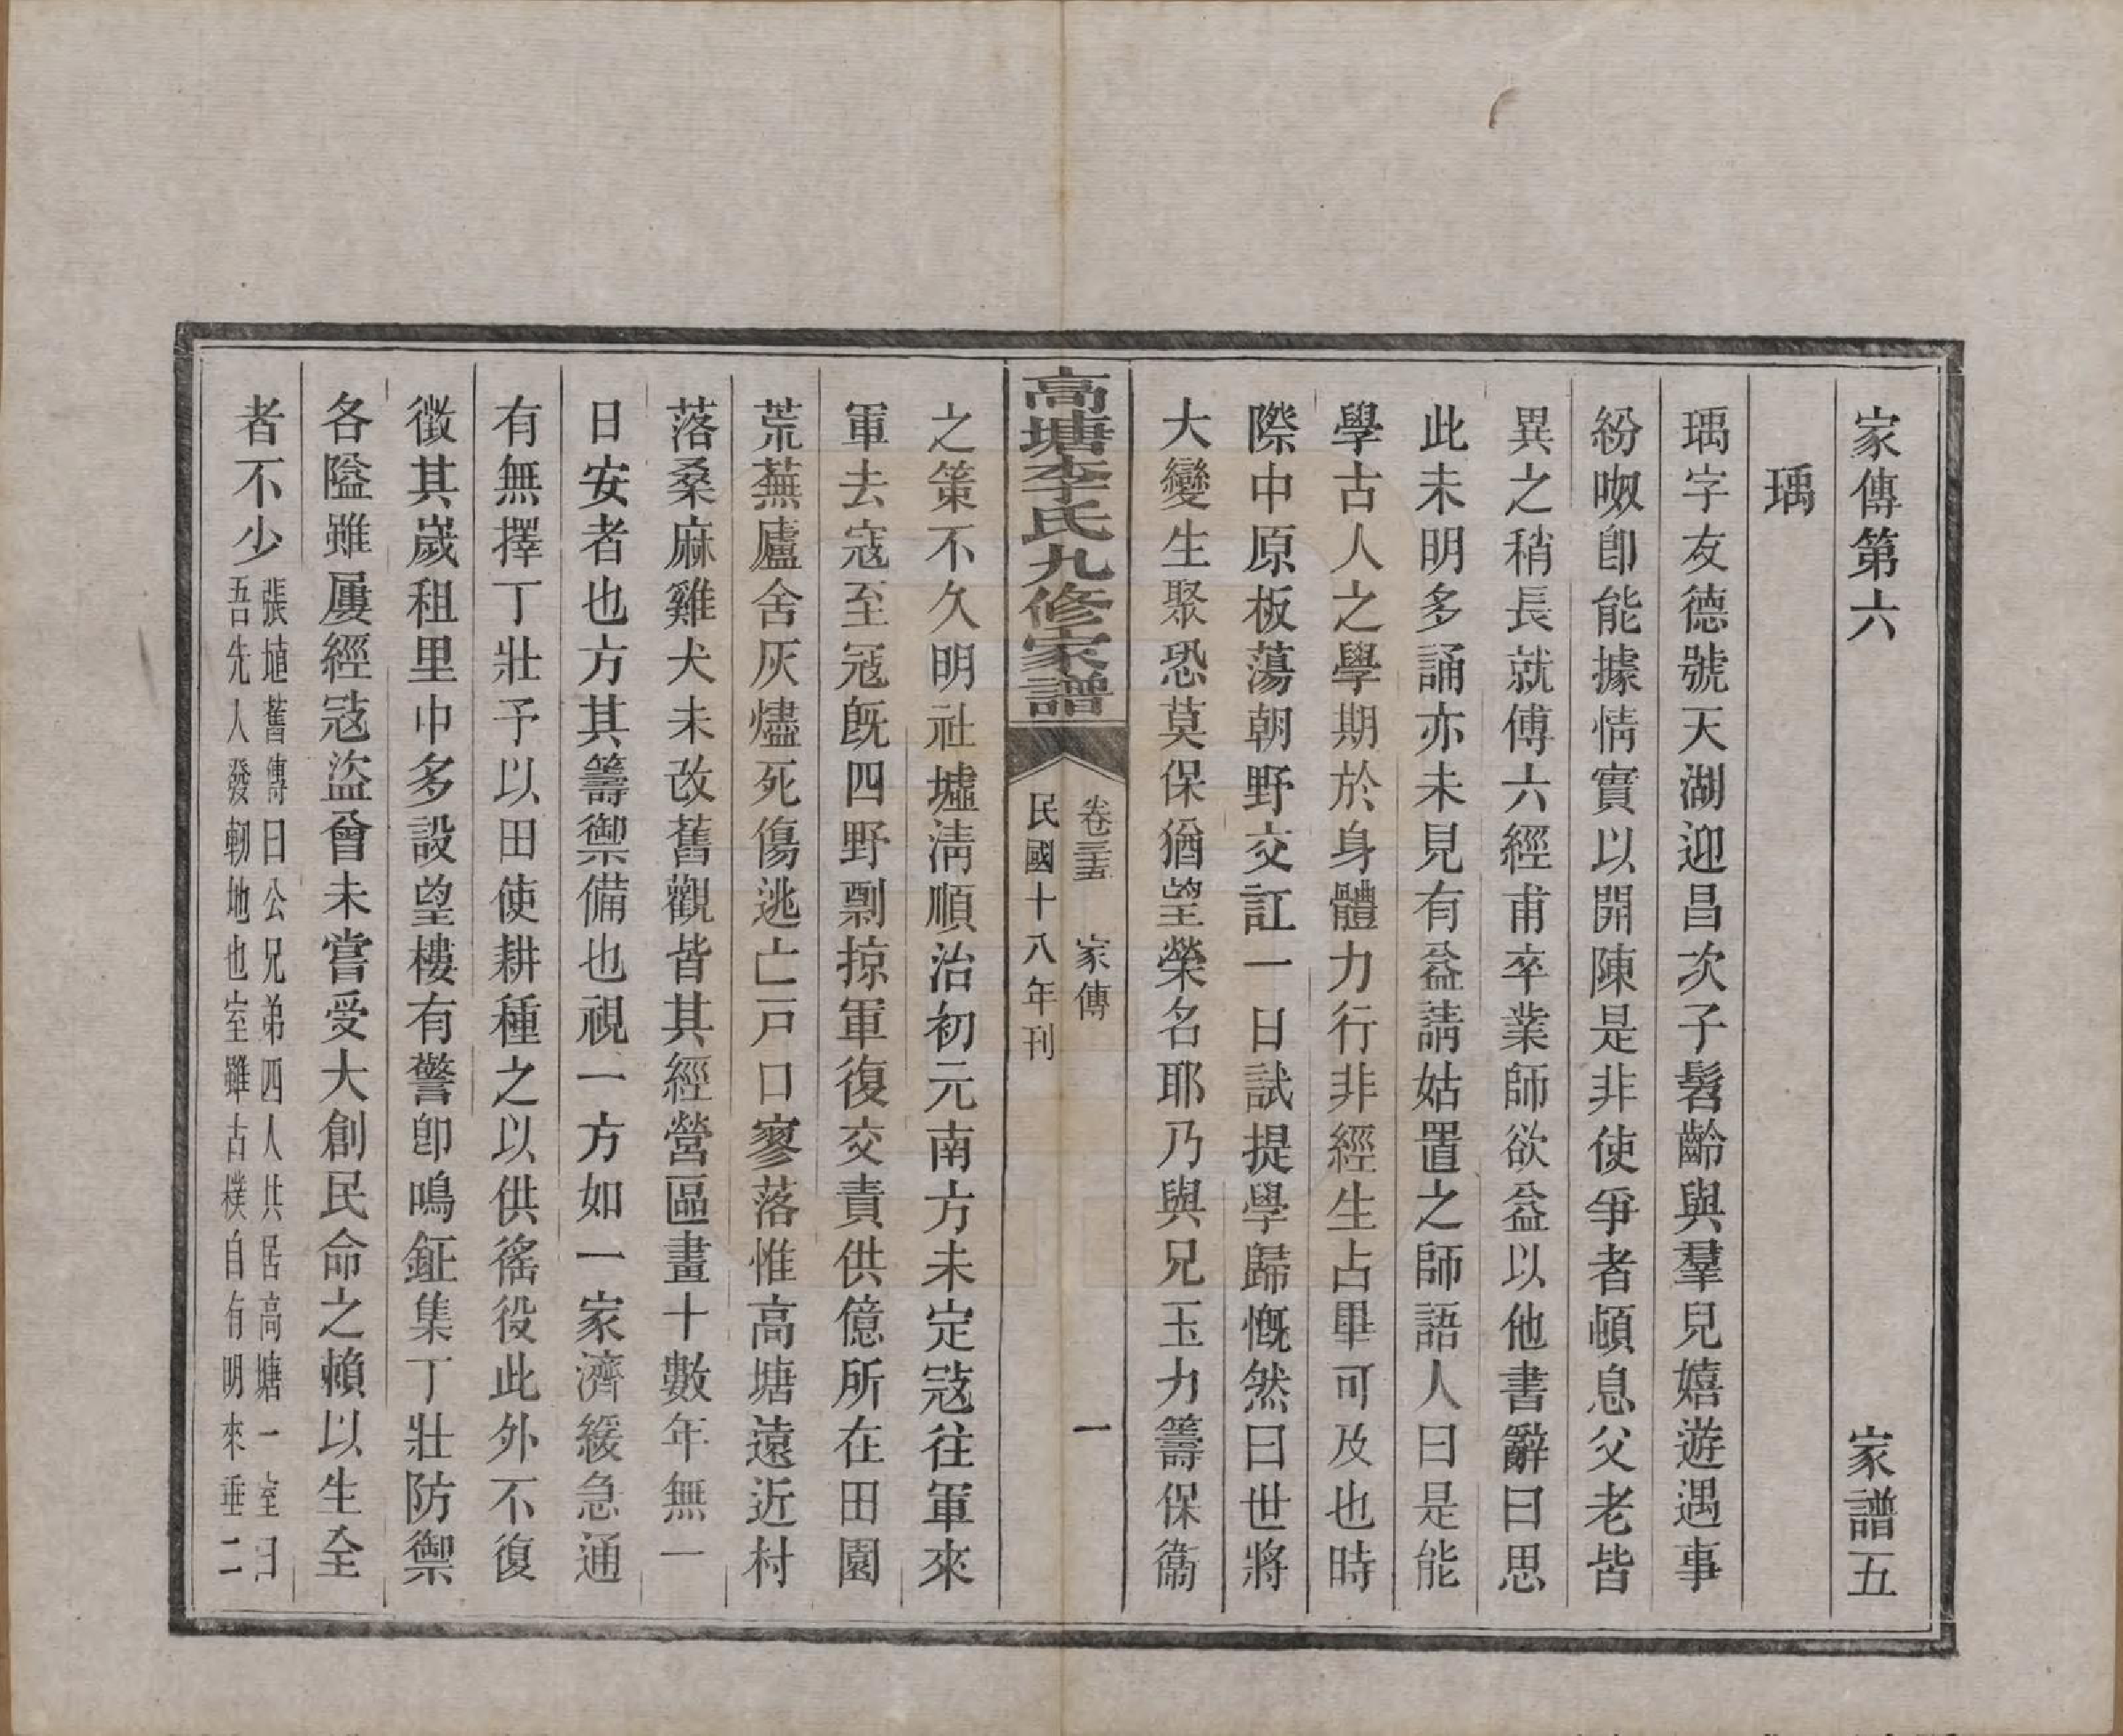 家傳第六　家譜五
瑀
瑀字友德號天湖迎昌次子髫齡與羣兒嬉遊遇事
紛呶卽能據情實以開陳是非使爭者頓息父老皆
異之稍長就傅六經甫卒業師欲益以他書辭曰思
此未明多誦亦未見有益請姑置之師語人曰是能
學古人之學期於身體力行非經生占畢可及也時
際中原板蕩朝野交訌一日試提學歸慨然曰世將
大變生聚恐莫保猶望榮名耶乃與兄玉力籌保衞
高塘李氏九修家譜
卷三十五　家傳　一
民國十八年刊
之策不久明社墟淸順治初元南方未定寇往軍來
軍去寇至寇旣四野剽掠軍復交責供億所在田園
荒蕪廬舍灰燼死傷逃亡戸口寥落惟高塘遠近村
落桑麻雞犬未改舊觀皆其經營區畫十數年無一
日安者也方其籌禦備也視一方如一家濟緩急通
有無擇丁壯予以田使耕種之以供徭役此外不復
徵其歲租里巾多設望樓有警卽鳴鉦集丁壯防禦
各隘雖屢經寇盜曾未嘗受大創民命之賴以生全
者不少
張埴舊傳曰公兄弟四人共居高塘一室曰
吾先人發軔地也室雖古樸自有明來垂二